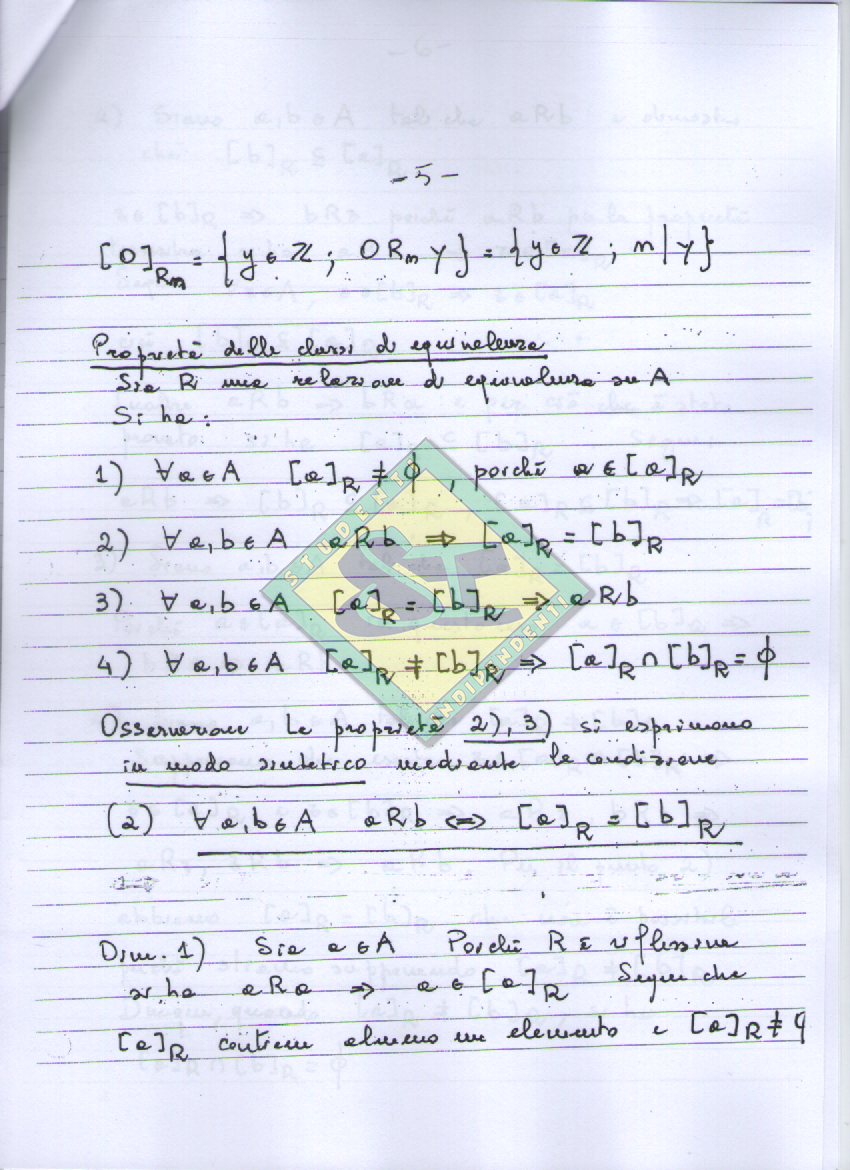 - 5 -
[0]_{Rm} = { y ∈ ℤ ; 0 Rm y } = { y ∈ ℤ ; m | y }
Proprietà delle classi di equivalenza
Sia R una relazione di equivalenza su A
Si ha :
1) ∀ a ∈ A [a]_R ≠ ∅ , perché a ∈ [a]_R
2) ∀ a, b ∈ A a R b ⇒ [a]_R = [b]_R
3) ∀ a, b ∈ A [a]_R = [b]_R ⇒ a R b
4) ∀ a, b ∈ A [a]_R ≠ [b]_R ⇒ [a]_R ∩ [b]_R = ∅
Osservazione Le proprietà 2), 3) si esprimono
in modo sintetico mediante la condizione
(2) ∀ a, b ∈ A a R b ⇔ [a]_R = [b]_R
Dim. 1) Sia a ∈ A Poiché R è riflessiva
si ha a R a ⇒ a ∈ [a]_R Segue che
[a]_R contiene almeno un elemento e [a]_R ≠ ∅
STUDENTI
INDIPENDENTI
SI